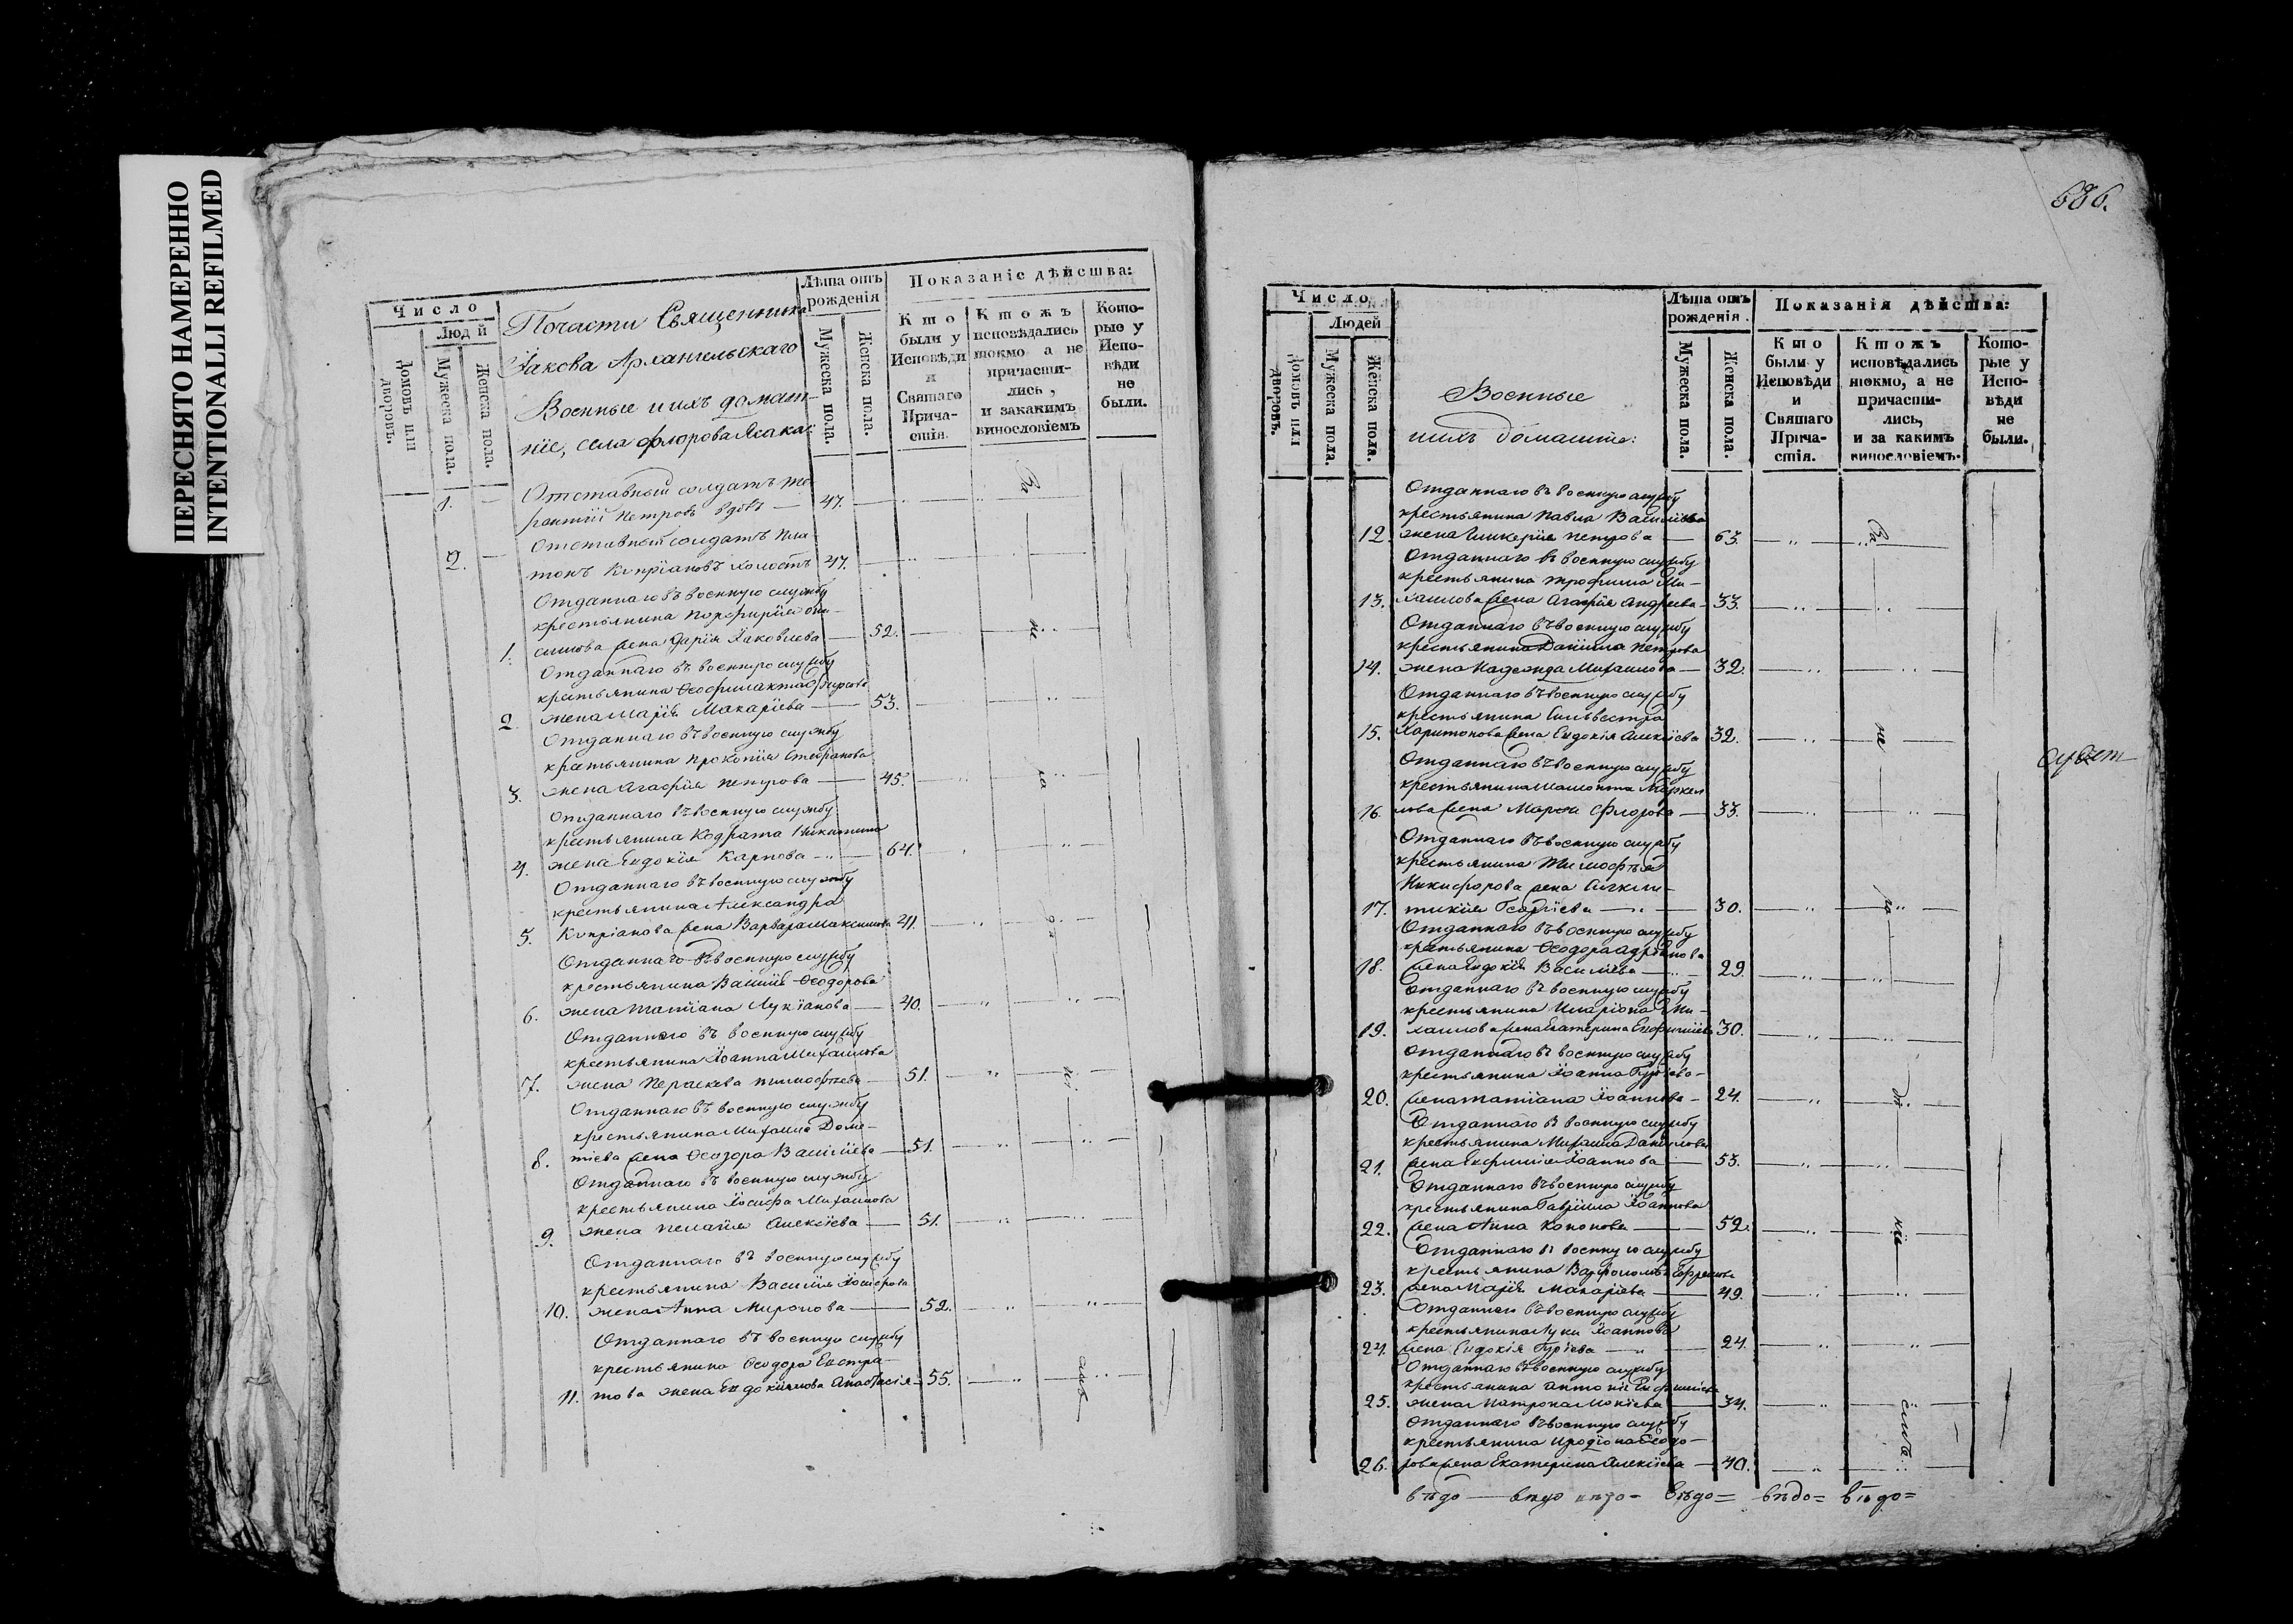 ПЕРЕСНЯТО НАМЕРЕННО
INTENTIONALLI REFILMED
Число
Людй
Домовъ или дворовъ.
Мужеска пола.
Женска пола.
Почасти Священника
Іакова Архангельскаго
Военные иихъ домаш-
ніе, села Флорова
Лѣта отъ рожденія
Мужеска пола.
Женска пола.
Показаніе дѣйства:
Кто были у Исповѣди и Святаго Причастія.
Ктожъ исповѣдались токмо а не причастились, и закакимъ винословіемъ
Которые у Исповѣди не были.
1. Отставный солдатъ
Петровъ вдовъ — 47.
2. Отставный солдатъ Пла-
тонъ Кипріановъ холостъ 47.
Отданнаго въ военную службу
крестьянина Порфирія
1. жена Дарія Іаковлева — 52.
Отданнаго въ военную службу
крестьянина Ѳеофилакта Фирсова
2. жена Марія Макаріева — 53.
Отданнаго въ военную службу
крестьянина Прокопія Стефанова
3. жена Агафія Петрова — 45.
Отданнаго въ военную службу
крестьянина Кодрата Никитина
4. жена Евдокія Карпова — 64.
Отданнаго въ военную службу
крестьянина Александра
5. Кипріанова жена Варвара Максимова 41.
Отданнаго въ военную службу
крестьянина Василія Ѳеодорова
6. жена Татіана Лукіанова — 40.
Отданнаго въ военную службу
крестьянина Іоанна Михаилова
7. жена Параскева Тимофѣева — 51.
Отданнаго въ военную службу
крестьянина Михаила Доме-
8. тіева жена Ѳеодора Василіева — 51.
Отданнаго въ военную службу
крестьянина Іосифа Михаилова
9. жена Пелагія Алексіева — 51.
Отданнаго въ военную службу
крестьянина Василія Іосифова
10. жена Анна Миронова — 52.
Отданнаго въ военную службу
крестьянина Ѳеодора Евстра-
11. това жена Евдокимова Анастасія — 55.
686.
Число
Людей
Домовъ или дворовъ.
Мужеска пола.
Женска пола.
Военные
иихъ домашніе:
Лѣта отъ рожденія.
Мужеска пола.
Женска пола.
Показанія дѣйства:
Кто были у Исповѣди и Святаго Причастія.
Ктожъ исповѣдались токмо, а не причастились, и за какимъ винословіемъ.
Которые у Исповѣди не были.
Отданнаго въ военную службу
крестьянина Павла Василіева
12. жена Гликерія Петрова — 63.
Отданнаго въ военную службу
крестьянина Трофима Ми-
13. хаилова жена Агафія Андреева — 33.
Отданнаго въ военную службу
крестьянина Даніила Петрова
14. жена Надежда Михаилова — 32.
Отданнаго въ военную службу
крестьянина Силвестра
15. Харитонова жена Евдокія Алексіева 32.
Отданнаго въ военную службу
крестьянина Мамонта Маркел
16. лова жена Марфа Флорова — 33.
Отданнаго въ военную службу
крестьянина Тимофѣя
Никифорова жена
17. Георгіева — 30.
Отданнаго въ военную службу
крестьянина Ѳеодора Адріанова
18. жена Евдокія Василіева — 29.
Отданнаго въ военную службу
крестьянина Иларіона Ми-
19. хаилова жена Екатерина Евфиміева 30.
Отданнаго въ военную службу
крестьянина Іоанна Гуріева —
20. жена Татіана Іоаннова — 24.
Отданнаго въ военную службу
крестьянина Михаила Данилова
21. жена Евфимія Іоаннова — 53.
Отданнаго въ военную службу
крестьянина Гавріила Іоаннова
22. жена Анна Кононова — 52.
Отданнаго въ военную службу
крестьянина Варфоломѣя Ефремова
23. жена Марія Макаріева — 49.
Отданнаго въ военную службу
крестьянина Луки Іоаннова
24. жена Евдокія Гуріева — 24.
Отданнаго въ военную службу
крестьянина Антонія Евфиміева
25. жена Матрона Мокіева — 34.
Отданнаго въ военную службу
крестьянина Иродіона Ѳеодо-
26. рова жена Екатерина Алексіева — 40.